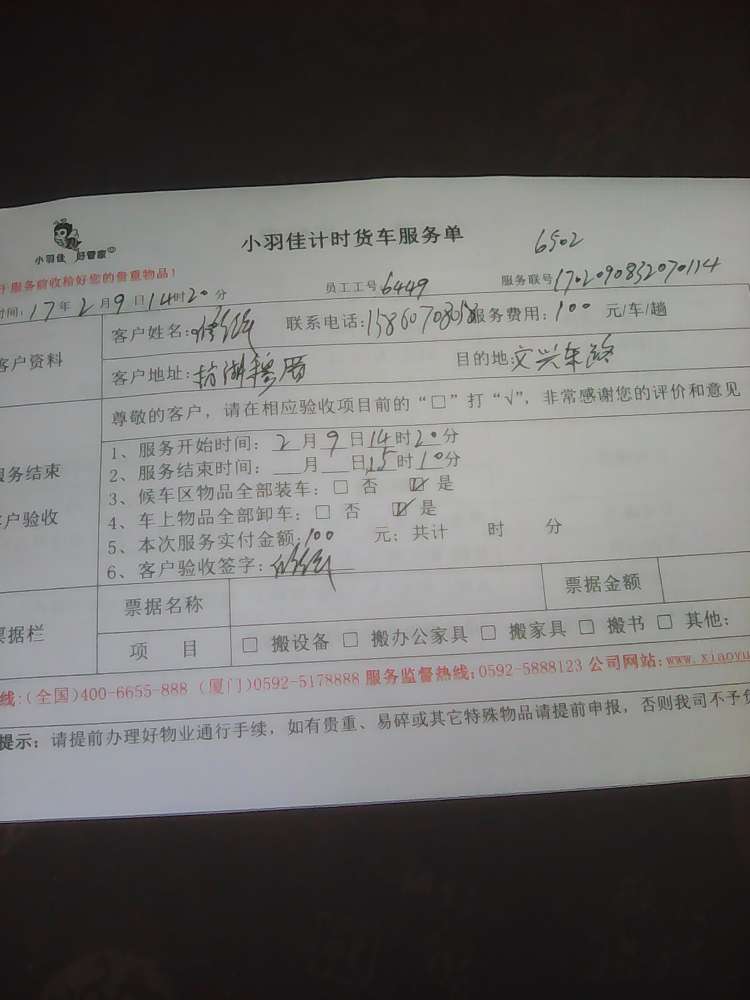 小羽佳 好管家
小羽佳计时货车服务单
6502
服务前收检好您的贵重物品!
员工工号6449
服务联号1702090832070114
时间: 17年2月9日14时20分
客户资料
客户姓名:
联系电话: 服务费用: 100 元/车/趟
客户地址:
目的地:文兴东路
尊敬的客户, 请在相应验收项目前的“□”打“√”, 非常感谢您的评价和意见
服务结束
客户验收
1、服务开始时间: 2月9日14时20分
2、服务结束时间: 月 日15时10分
3、候车区物品全部装车: □ 否 ☑ 是
4、车上物品全部卸车: □ 否 ☑ 是
5、本次服务实付金额:100 元; 共计 时 分
6、客户验收签字:
票据栏
票据名称
票据金额
项 目
□ 搬设备 □ 搬办公家具 □ 搬家具 □ 搬书 □ 其他:
线:(全国)400-6655-888 (厦门)0592-5178888 服务监督热线:0592-5888123 公司网站:www.xiaoyu
提示: 请提前办理好物业通行手续, 如有贵重、易碎或其它特殊物品请提前申报, 否则我司不予